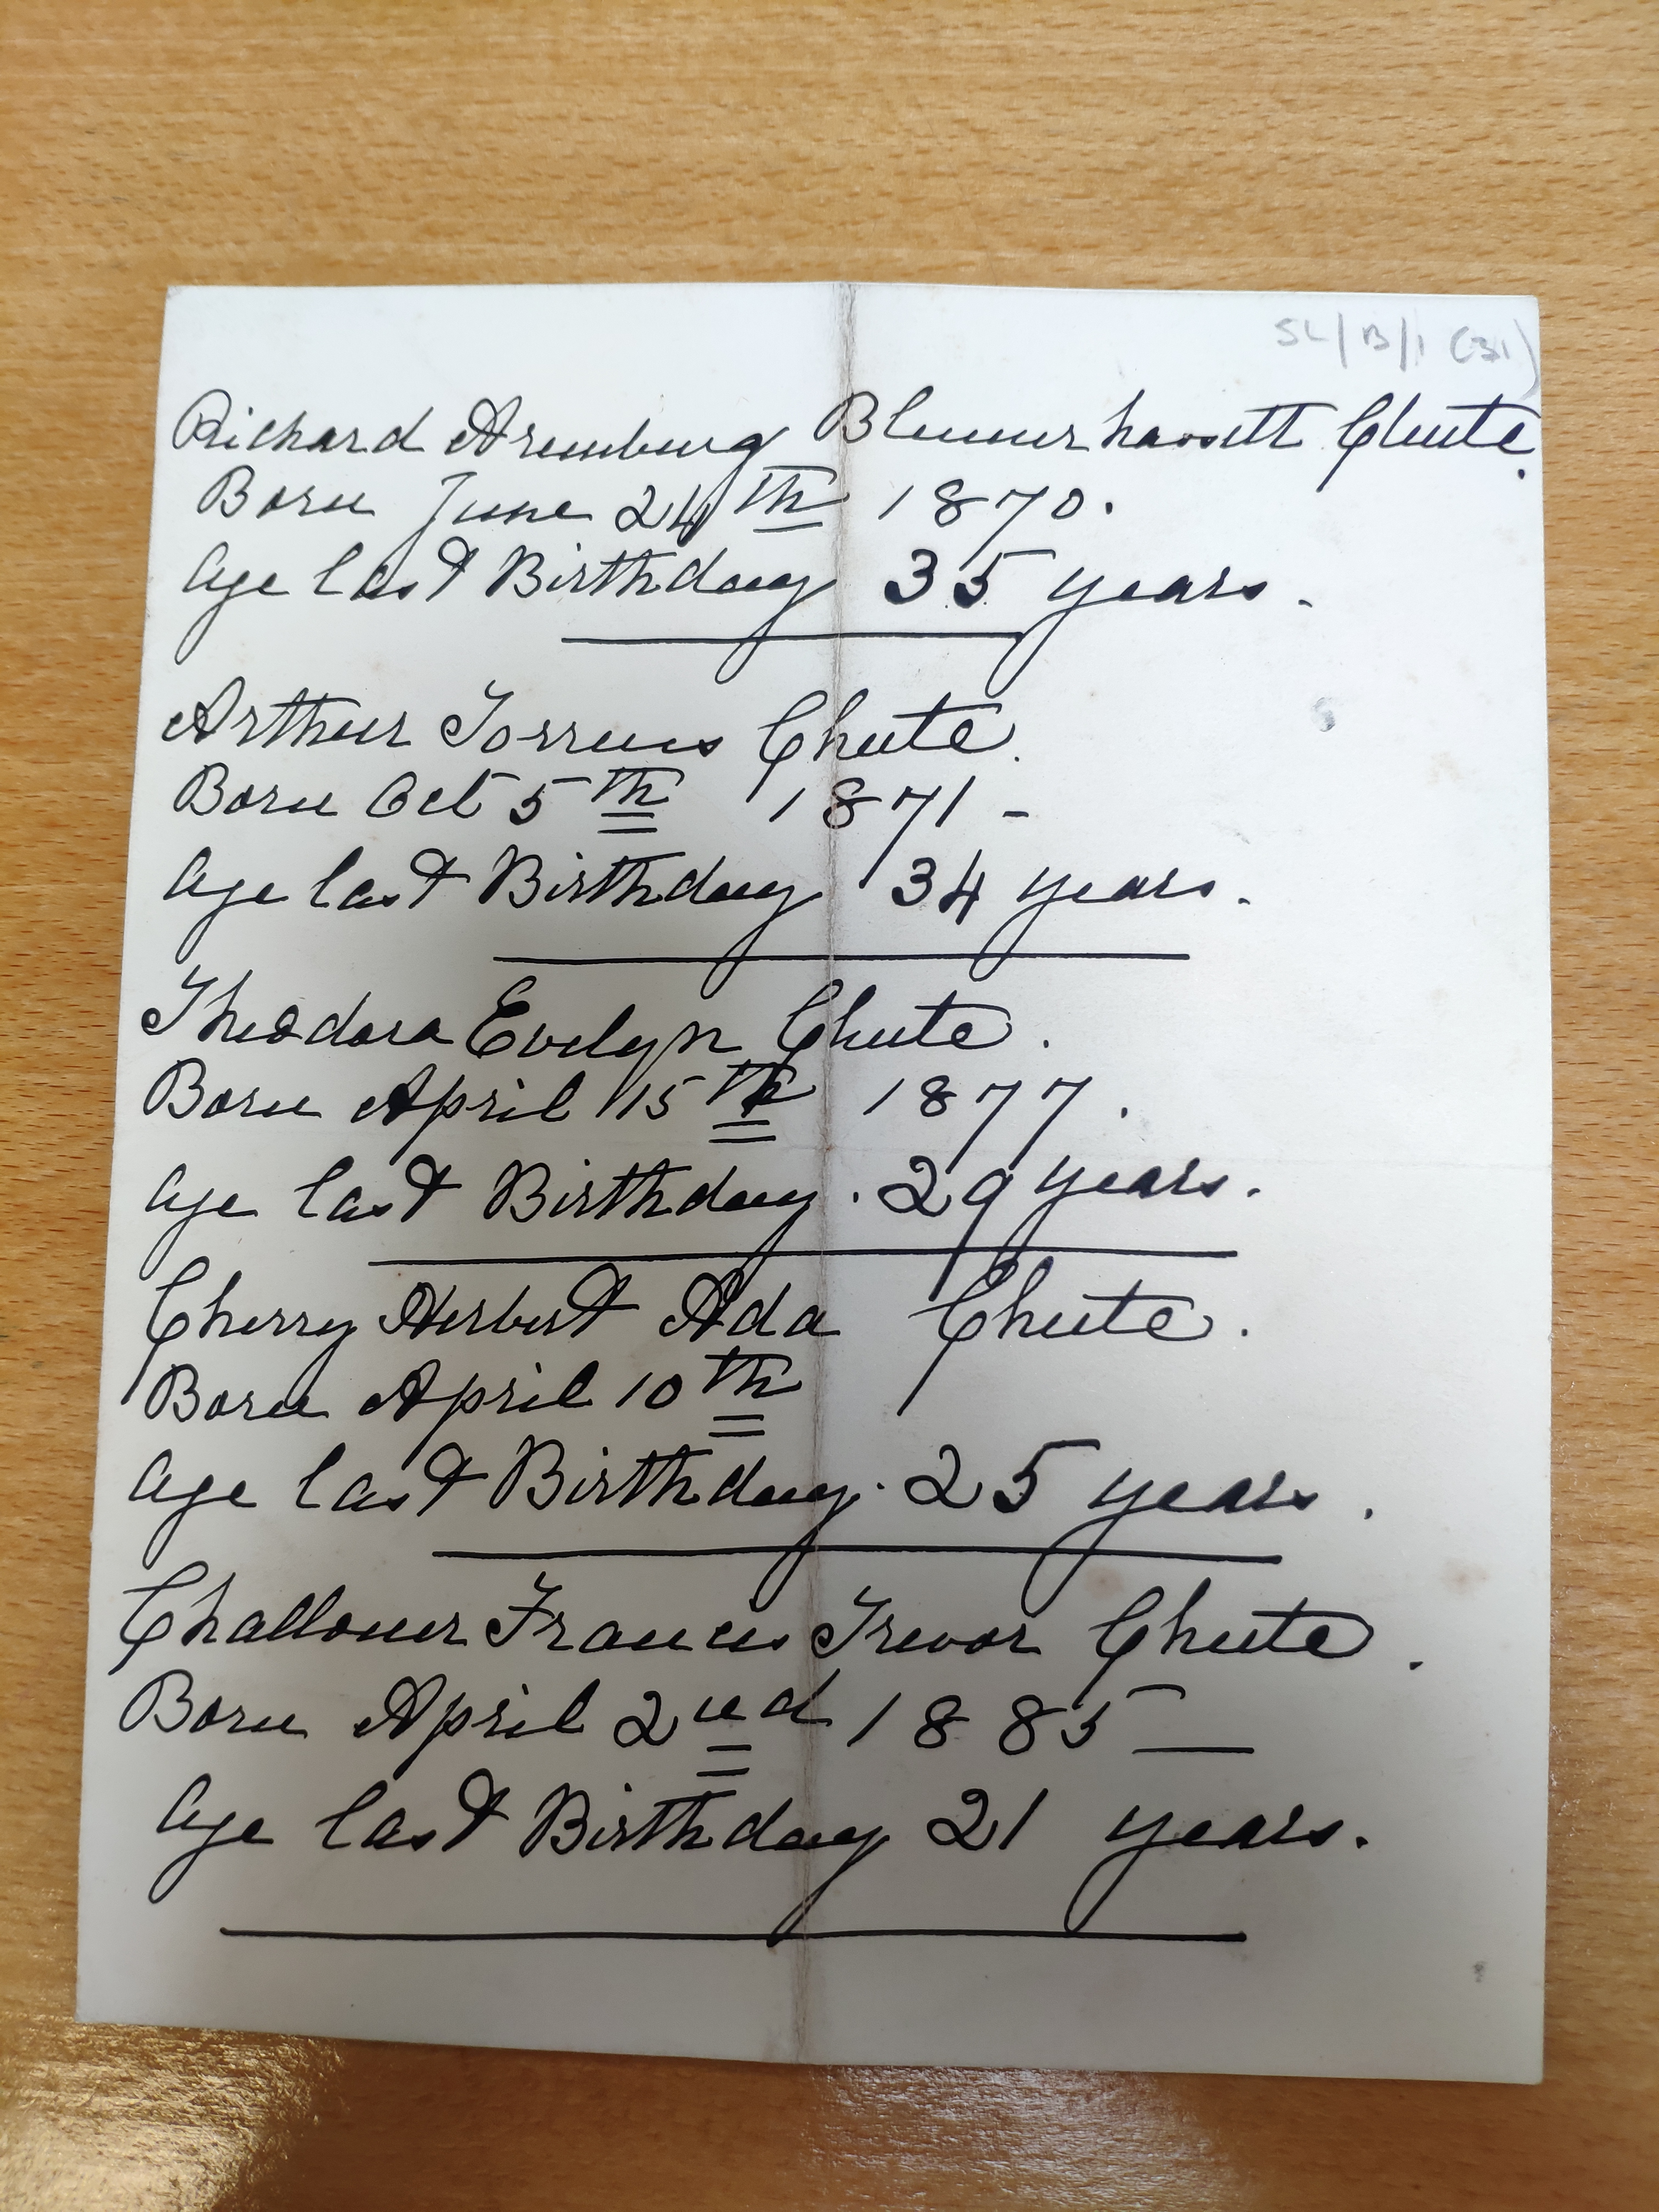 SL/B/1 (31)
Richard Aremburg Blennerhassett Chute.
Born June 24th 1870.
Age last Birthday 35 years.
Arthur Torrens Chute.
Born Oct 5th 1871 -
Age last Birthday 34 years.
Theodora Evelyn Chute.
Born April 15th 1877.
Age last Birthday. 29 years.
Cherry Herbert Ada Chute.
Born April 10th
Age last Birthday. 25 years.
Challoner Francis Trevor Chute.
Born April 2nd 1885 —
Age last Birthday 21 years.